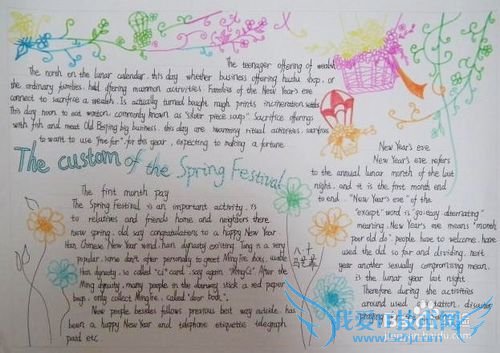 The teenager offering of wealth
The north on the lunar calendar, this day whether business offering hutu loop, or
the ordinary families, hold offering mammon activities. Families of the New Year's eve
connect to sacrifice a wealth. Is actually turned bought rough prints incineration
This day noon to eat wonton, commonly known as "silver piece soup." Sacrifice offerings
with fish and meat Old Beijing big business, this day are mourning ritual activities, sacrifice
to want to use "five for" for this year, expecting to making a fortune.
The custom of the Spring Festival
The first month pay
The Spring Festival is an important activity, is
to relatives and friends home and neighbors there
new spring, old say congratulations to a happy New Year
Han Chinese New Year wind, han dynasty existing. Tang is a very
popular, some don't after personally to greet Mingtie, both, usable
Han dynasty is called "ci" card, say again "MingCi". After the
Ming dynasty, many people in the doorway stick a red paper
bags, only collect MingTie, called "door book".
Now people besides follows previous best way outside, has
been a happy New Year and telephone etiquette telegraph
paid etc
New Year's eve
New Year's eve refers
to the annual lunar month of the last
night, and it is the first month end
to end. "New Year's eve" of the
"except" word is "go; easy; alternating"
meaning, New Year's eve means "month
poor old do" people have to welcome, have
used the old so far and dividing, next
year another sexually compromising mean
is the lunar year last night.
Therefore during the activities
around used
praying